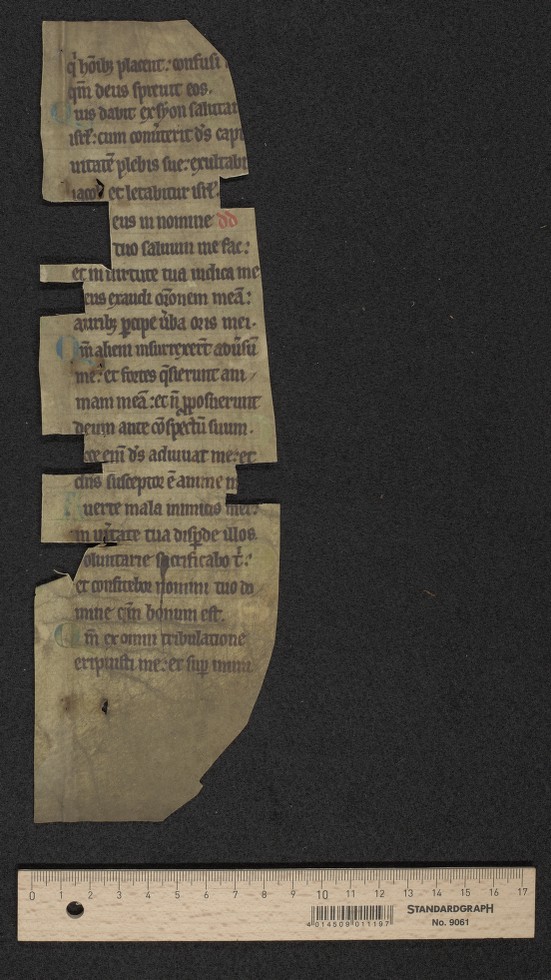 q̇ ho᷑ibꝫ placent: confusi
qm̄ deus spreuit eos.
Quis dabit ex syon salutar
isrl̄: cum conuterit dn̄s capt
uitatē plebis sue: exultabi
iacob et letabitur isrl̄.
eus in nomine dd
tuo saluum me fac:
et in uirtute tua iudica me
eus exaudi or̄onem meā:
auribꝫ ꝑcipe ūba oris mei.
Qm̄ alieni insurrexer̄t adusū
me: et fortes q̄sierunt ani
mam meā: et n̄ ꝓposuerunt
deum ante cōspectū suum.
cce eni᷑ dn̄s adiuuat me: et
dn̄s susceptor ē anime m
uerte mala inimicis meis:
in uītate tua disꝑde illos.
oluntarie sacrificabo t̄:
et confitebor nomini tuo do
mine qm̄ bonum est.
Qm̄ ex omni tribulatione
eripuisti me: et suꝑ inimi
0 1 2 3 4 5 6 7 8 9 10 11 12 13 14 15 16 17
STANDARDGRAPH
No. 9061
4 014509 011197